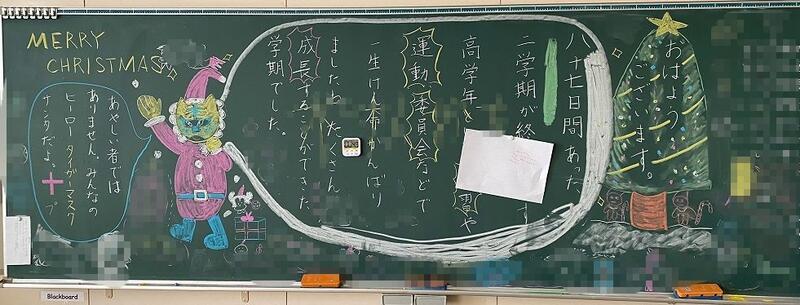 おはよう
ございます。
八十七日間あった
二学期が終 す
高学年と 習や
運動、委員会などで
一生けん命がんばり
ましたね。たくさん
成長することができた
学期でした。
MERRY
CHRISTMAS
あやしい者では
ありません。みんなの
ヒーロータイガーマスク
サンタだよ。
Blackboard